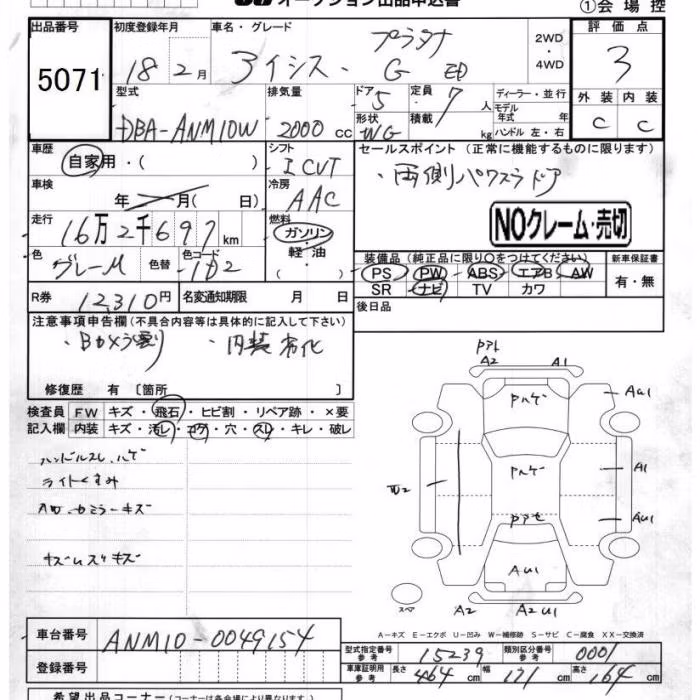 オークション出品申込書
①会場控
出品番号 5071
初度登録年月 18 2月
車名・グレード アイシス・プラタナ G
2WD・4WD
評価点 3
外装 内装
C C
型式 DBA-ANM10W
排気量 2000cc
ドア 5
形状 WG
定員 7人
積載 kg
ディーラー・並行
モデル年式 年
ハンドル 左・右
車歴 自家用・( )
シフト I CVT
セールスポイント (正常に機能するものに限ります)
・両側パワスラドア
NOクレーム・売切
車検 年 月( 日)
冷房 AAC
走行 16万2千697km
燃料 ガソリン・軽油・( )
色 グレーM 色替 色コード 1D2
装備品 (純正品に限り○をつけてください)
PS PW ABS エアB AW
SR ナビ TV カワ
新車保証書 有・無
R券 12,310円
名変通知期限 月 日
後日品
注意事項申告欄 (不具合内容等は具体的に記入して下さい)
・Bカメラ割 ・内装劣化
修復歴 有 〔箇所 〕
検査員記入欄
FW キズ・飛石・ヒビ割・リペア跡・×要
内装 キズ・汚レ・コゲ・穴・スレ・キレ・破レ
ハンドルスレ、ハゲ
ライトくすみ
AW・カミラーキズ
Pアト
A2 A1
Pハゲ
AU1
Pハゲ
A1
W2
Pアせ
AU1
AU1
スペア
A2 A2 U1
A-キズ E-エクボ U-凹み W-補修跡 S-サビ C-腐食 XX-交換済
車台番号 ANM10-0049154
登録番号
型式指定番号参考 15239
類別区分番号参考 0001
車庫証明用参考 長さ 464cm 幅 171cm 高さ 164cm
希望出品コーナー (コーナーは各会場により異なります)